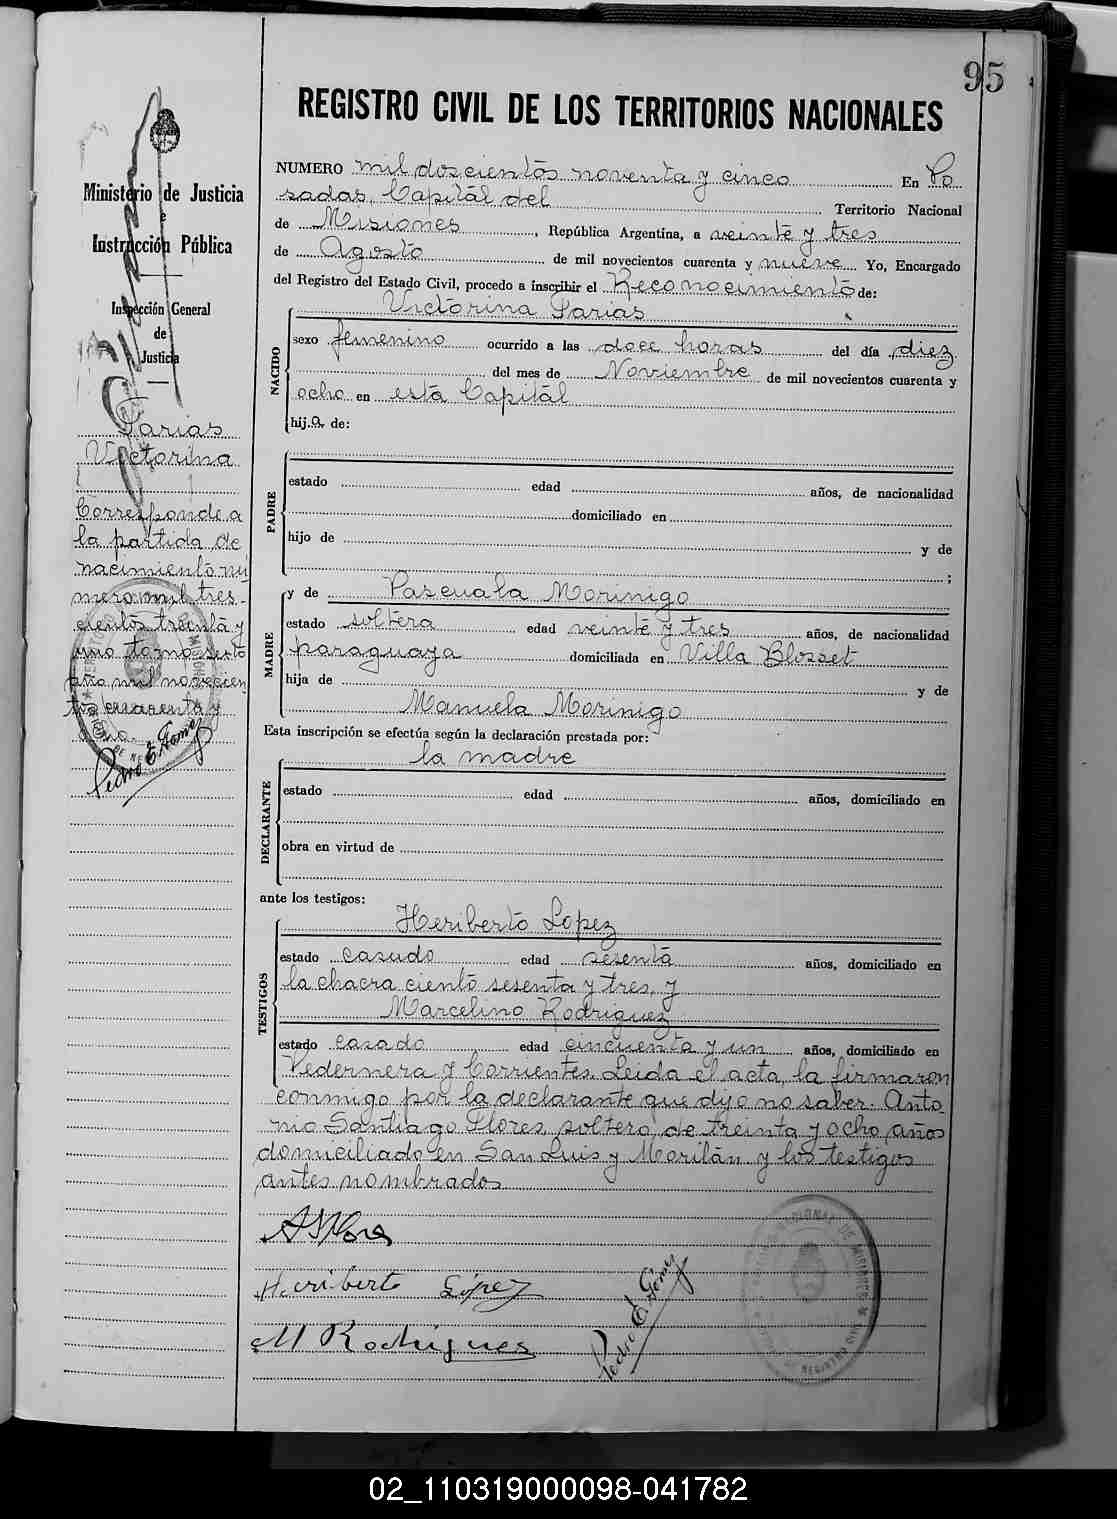 95
REGISTRO CIVIL DE LOS TERRITORIOS NACIONALES
Ministerio de Justicia
e
Instrucción Pública
Inspección General
de
Justicia
Farias
Victorina
Corresponde a
la partida de
nacimiento nú
mero mil tres
cientos treinta y
uno tomo sexto
año mil novecien
tos cuarenta y
Pedro E. Gomez
NUMERO mil doscientos noventa y cinco En Po
sadas, Capital del Territorio Nacional
de Misiones, República Argentina, a veinte y tres
de Agosto de mil novecientos cuarenta y nueve Yo, Encargado
del Registro del Estado Civil, procedo a inscribir el Reconocimiento de:
NACIDO
Victorina Farias
sexo femenino ocurrido a las doce horas del día diez
del mes de Noviembre de mil novecientos cuarenta y
ocho en esta Capital
hij.a de:
PADRE
estado edad años, de nacionalidad
domiciliado en
hijo de y de
;
MADRE
y de Pascuala Morinigo
estado soltera edad veinte y tres años, de nacionalidad
paraguaya domiciliada en Villa Blosset
hija de y de
Manuela Morinigo
Esta inscripción se efectúa según la declaración prestada por:
DECLARANTE
la madre
estado edad años, domiciliado en
obra en virtud de
ante los testigos:
TESTIGOS
Heriberto Lopez
estado casado edad sesenta años, domiciliado en
la chacra ciento sesenta y tres, y
Marcelino Rodriguez
estado casado edad cincuenta y un años, domiciliado en
Pedernera y Corrientes. Leida el acta, la firmaron
conmigo por la declarante que dijo no saber. Anto
nio Santiago Flores, soltero, de treinta y ocho años
domiciliado en San Luis y Morilán y los testigos
antes nombrados
A S Flores
Heriberto López
M Rodrigues
Pedro E. Gomez
02_110319000098-041782